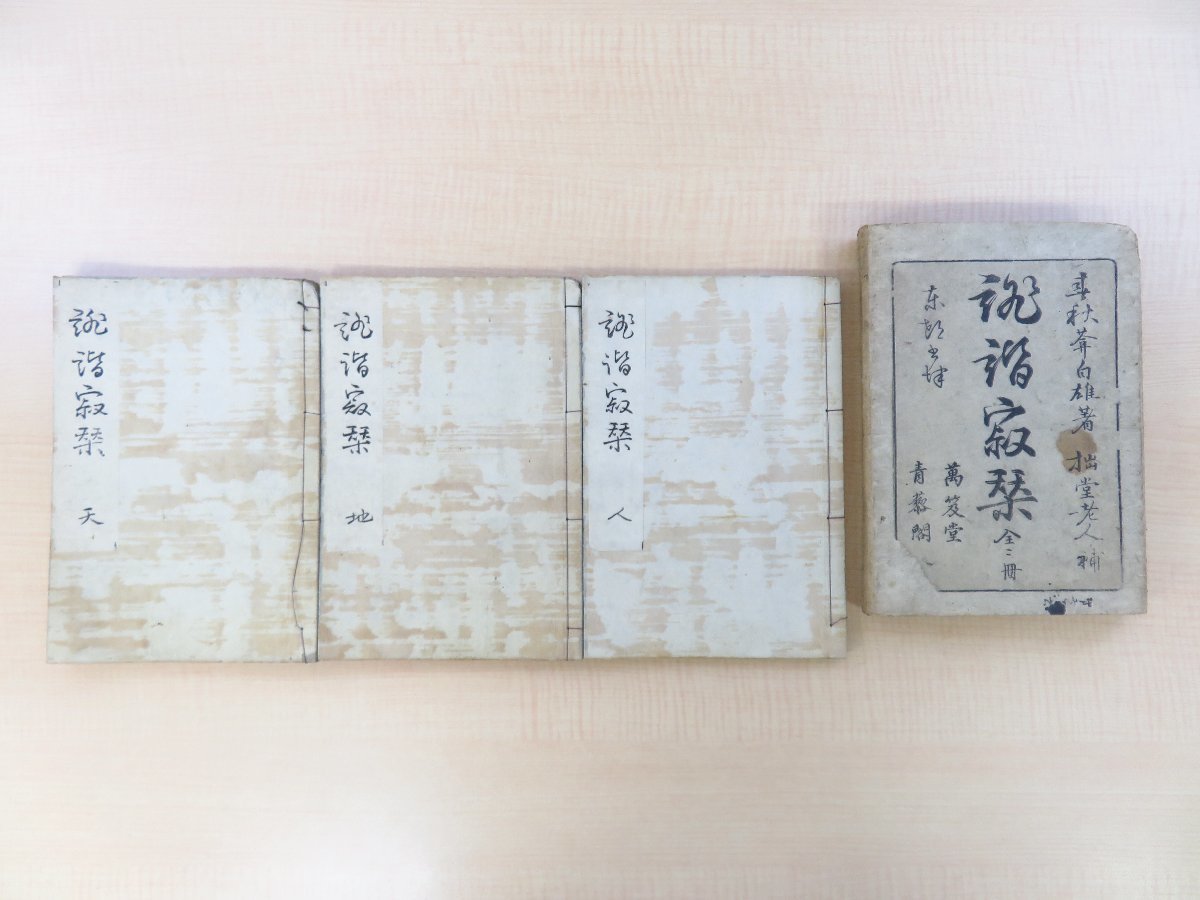 誹諧寂栞
天
誹諧寂栞
地
誹諧寂栞
人
春秋菴白雄著 拙堂老人補
誹諧寂栞 全三冊
東都書肆
萬笈堂
青藜閣